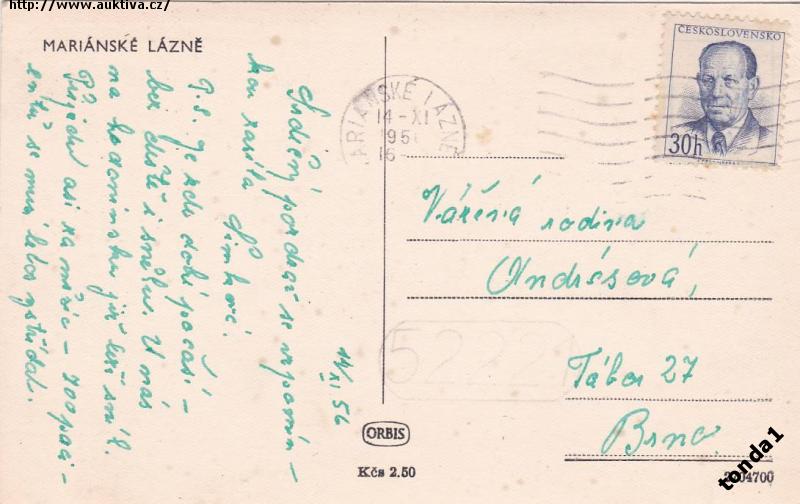 http://www.auktiva.cz/
MARIÁNSKÉ LÁZNĚ
Srdečný pozdrav se vzpomín-
kou zasílá
Šimkovi.
P.S. Je zde dobré počasí -
bez deště i sněhu. U nás
na hodonínsku již leží sníh.
Přijedu asi za měsíc - 200 paci-
entů se musí letos vystřídat.
14/XI 56
ARIÁNSKÉ LÁZNĚ
14-XI
195
16
ČESKOSLOVENSKO
30h
Vážená rodina
Ondrášová,
Tábor 27
Brno.
5222
ORBIS
Kčs 2.50
04700
tonda1